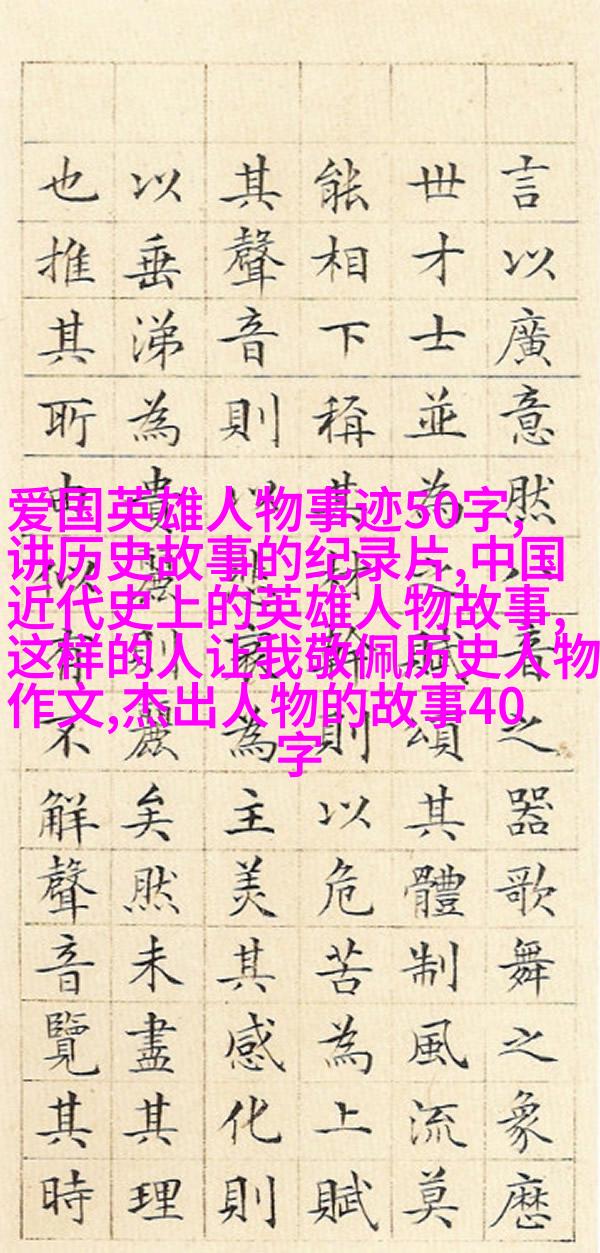 爱国英雄人物事迹50字,
讲历史故事的纪录片,中国
近代史上的英雄人物故事,
这样的人让我敬佩历史人物
作文,杰出人物的故事40
字
言以廣意然八音之器歌舞之象歷
世才士並為之賦頌其體制風流莫
能相下稱其材幹則以危苦為上賦
其聲音則以悲哀為主美其感化則
以垂涕為貴麗則麗矣然未盡其理
也推其所由似有不解聲音覽其時